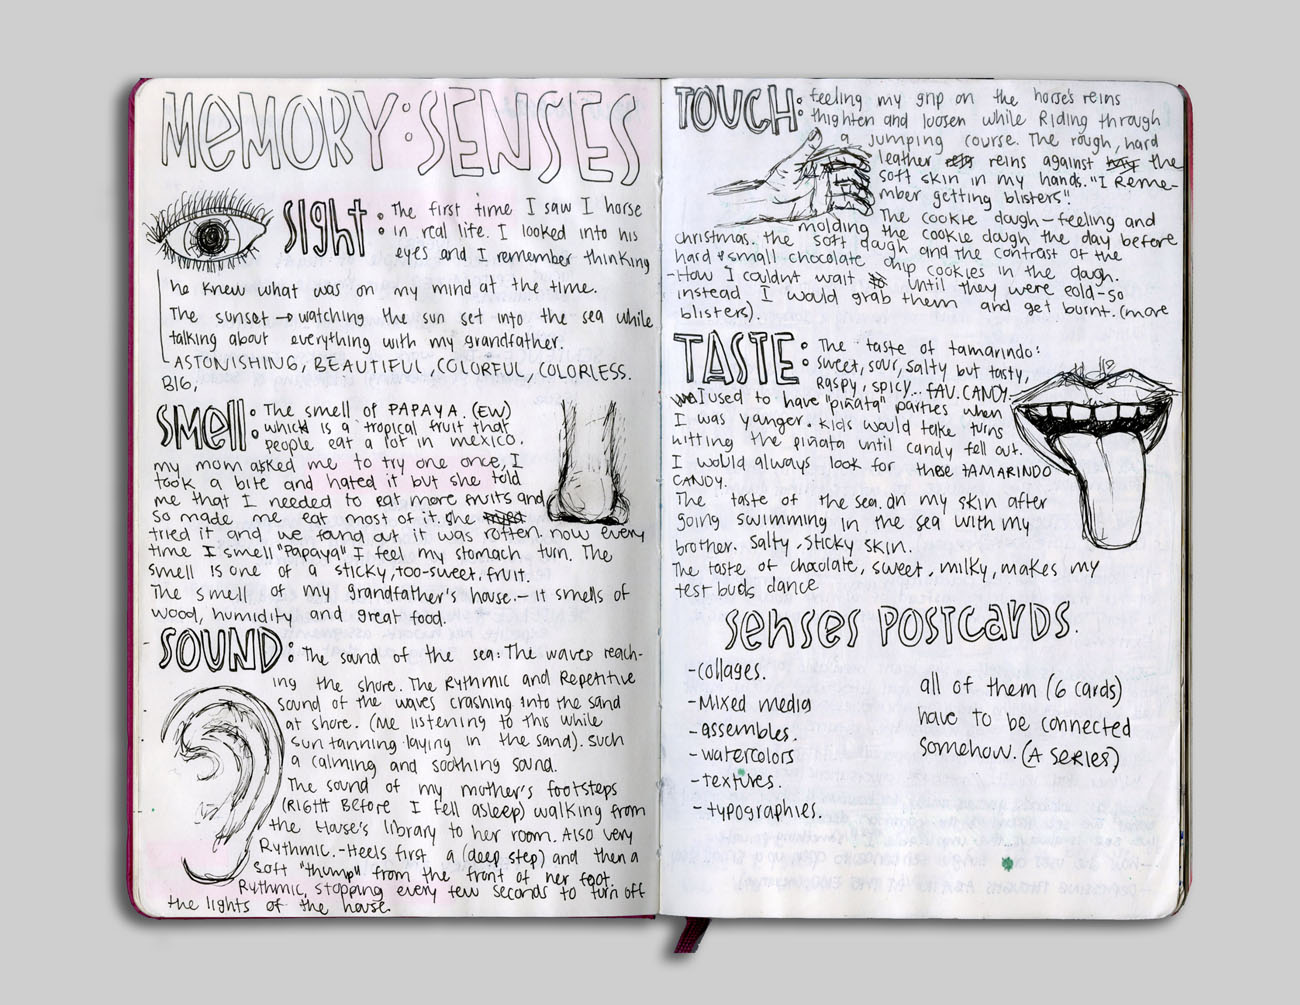 MEMORY: SENSES
SIGHT: The first time I saw I horse
in real life. I looked into his
eyes and I remember thinking
he knew what was on my mind at the time.
The sunset → watching the sun set into the sea while
talking about everything with my grandfather.
- ASTONISHING, BEAUTIFUL, COLORFUL, COLORLESS.
BIG,
SMELL: The smell of PAPAYA. (EW)
which is a tropical fruit that
people eat a lot in mexico.
my mom asked me to try one once, I
took a bite and hated it but she told
me that I needed to eat more fruits and
so made me eat most of it. She
tried it and we found out it was rotten. now every
time I smell "Papaya" I feel my stomach turn. The
smell is one of a sticky, too-sweet, fruit.
The smell of my grandfather's house. - it smells of
wood, humidity and great food.
SOUND: The sound of the sea: The waves reach-
ing the shore. The Rythmic and Repetitive
sound of the waves crashing into the sand
at shore. (me listening to this while
sun tanning laying in the sand). such
a calming and soothing sound.
The sound of my mother's footsteps
(RIGHT BEFORE I fell asleep) walking from
the House's library to her room. Also very
Rythmic. - Heels first a (deep step) and then a
soft "thump" from the front of her foot.
Rythmic, stopping every few seconds to turn off
the lights of the house.
TOUCH: feeling my grip on the horse's reins
thighten and loosen while Riding through
a jumping course. The rough, hard
leather reins against the
soft skin in my hands. "I Reme-
mber getting blisters".
The cookie dough - feeling and
molding the cookie dough the day before
christmas. the soft dough and the contrast of the
hard & small chocolate chip cookies in the dough.
- How I couldnt wait until they were cold - so
instead I would grab them and get burnt. (more
blisters).
TASTE: The taste of tamarindo:
sweet, sour, salty but tasty,
Raspy, spicy... FAV. CANDY.
I used to have "piñata" parties when
I was yanger. kids would take turns
hitting the piñata until candy fell out.
I would always look for these TAMARINDO
CANDY.
The taste of the sea. on my skin after
going swimming in the sea with my
brother. Salty, sticky skin.
The taste of chocolate, sweet, milky, makes my
test buds dance
SENSES POSTCARDS.
- collages.
- Mixed media
- assembles.
- watercolors
- textures.
- typographies.
all of them (6 cards)
have to be connected
somehow. (A SERIES)